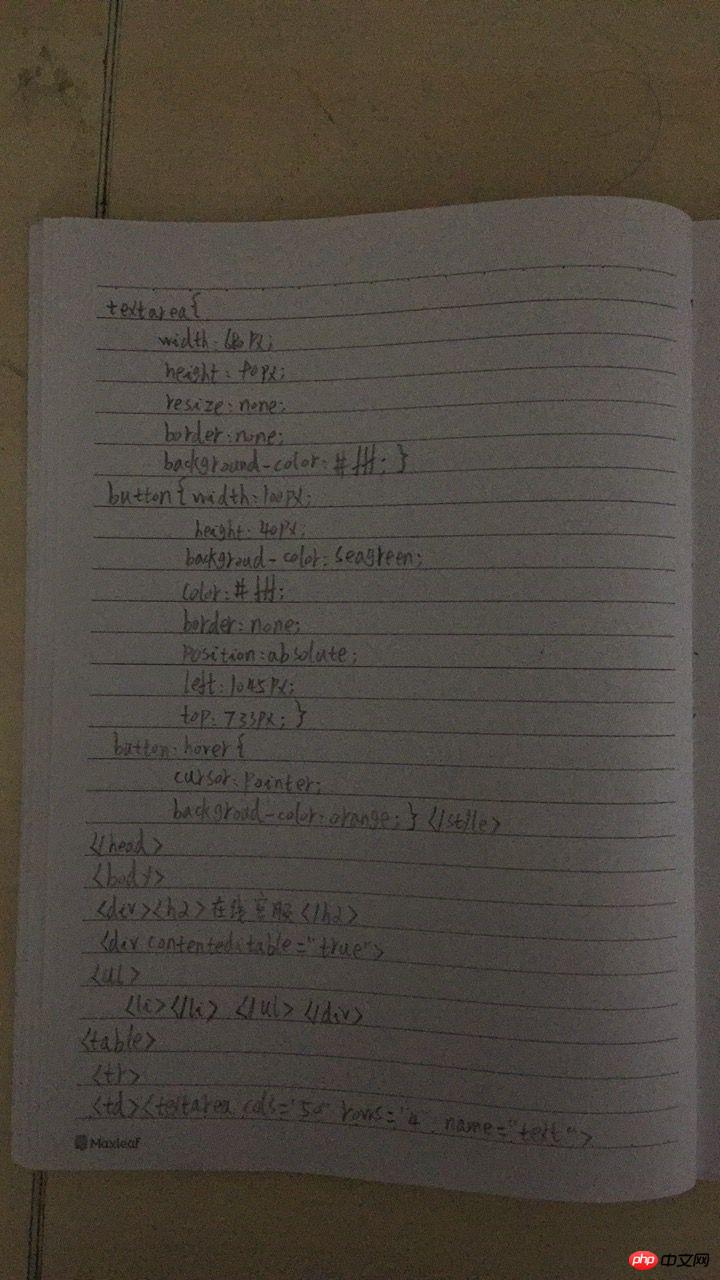 textarea{
width:680px;
height:90px;
resize:none;
border:none;
background-color:#fff; }
button{ width:100px;
height:40px;
backgroud-color:seagreen;
color:#fff;
border:none;
position:absolute;
left:1045px;
top:733px; }
button:hover{
cursor:pointer;
backgroud-color:orange; } </style>
</head>
<body>
<div><h2>在线客服</h2>
<div contenteditable="true">
<ul>
<li></li> </ul> </div>
<table>
<tr>
<td><textarea cols="50" rows="4" name="text">
Maxleaf
php 中文网